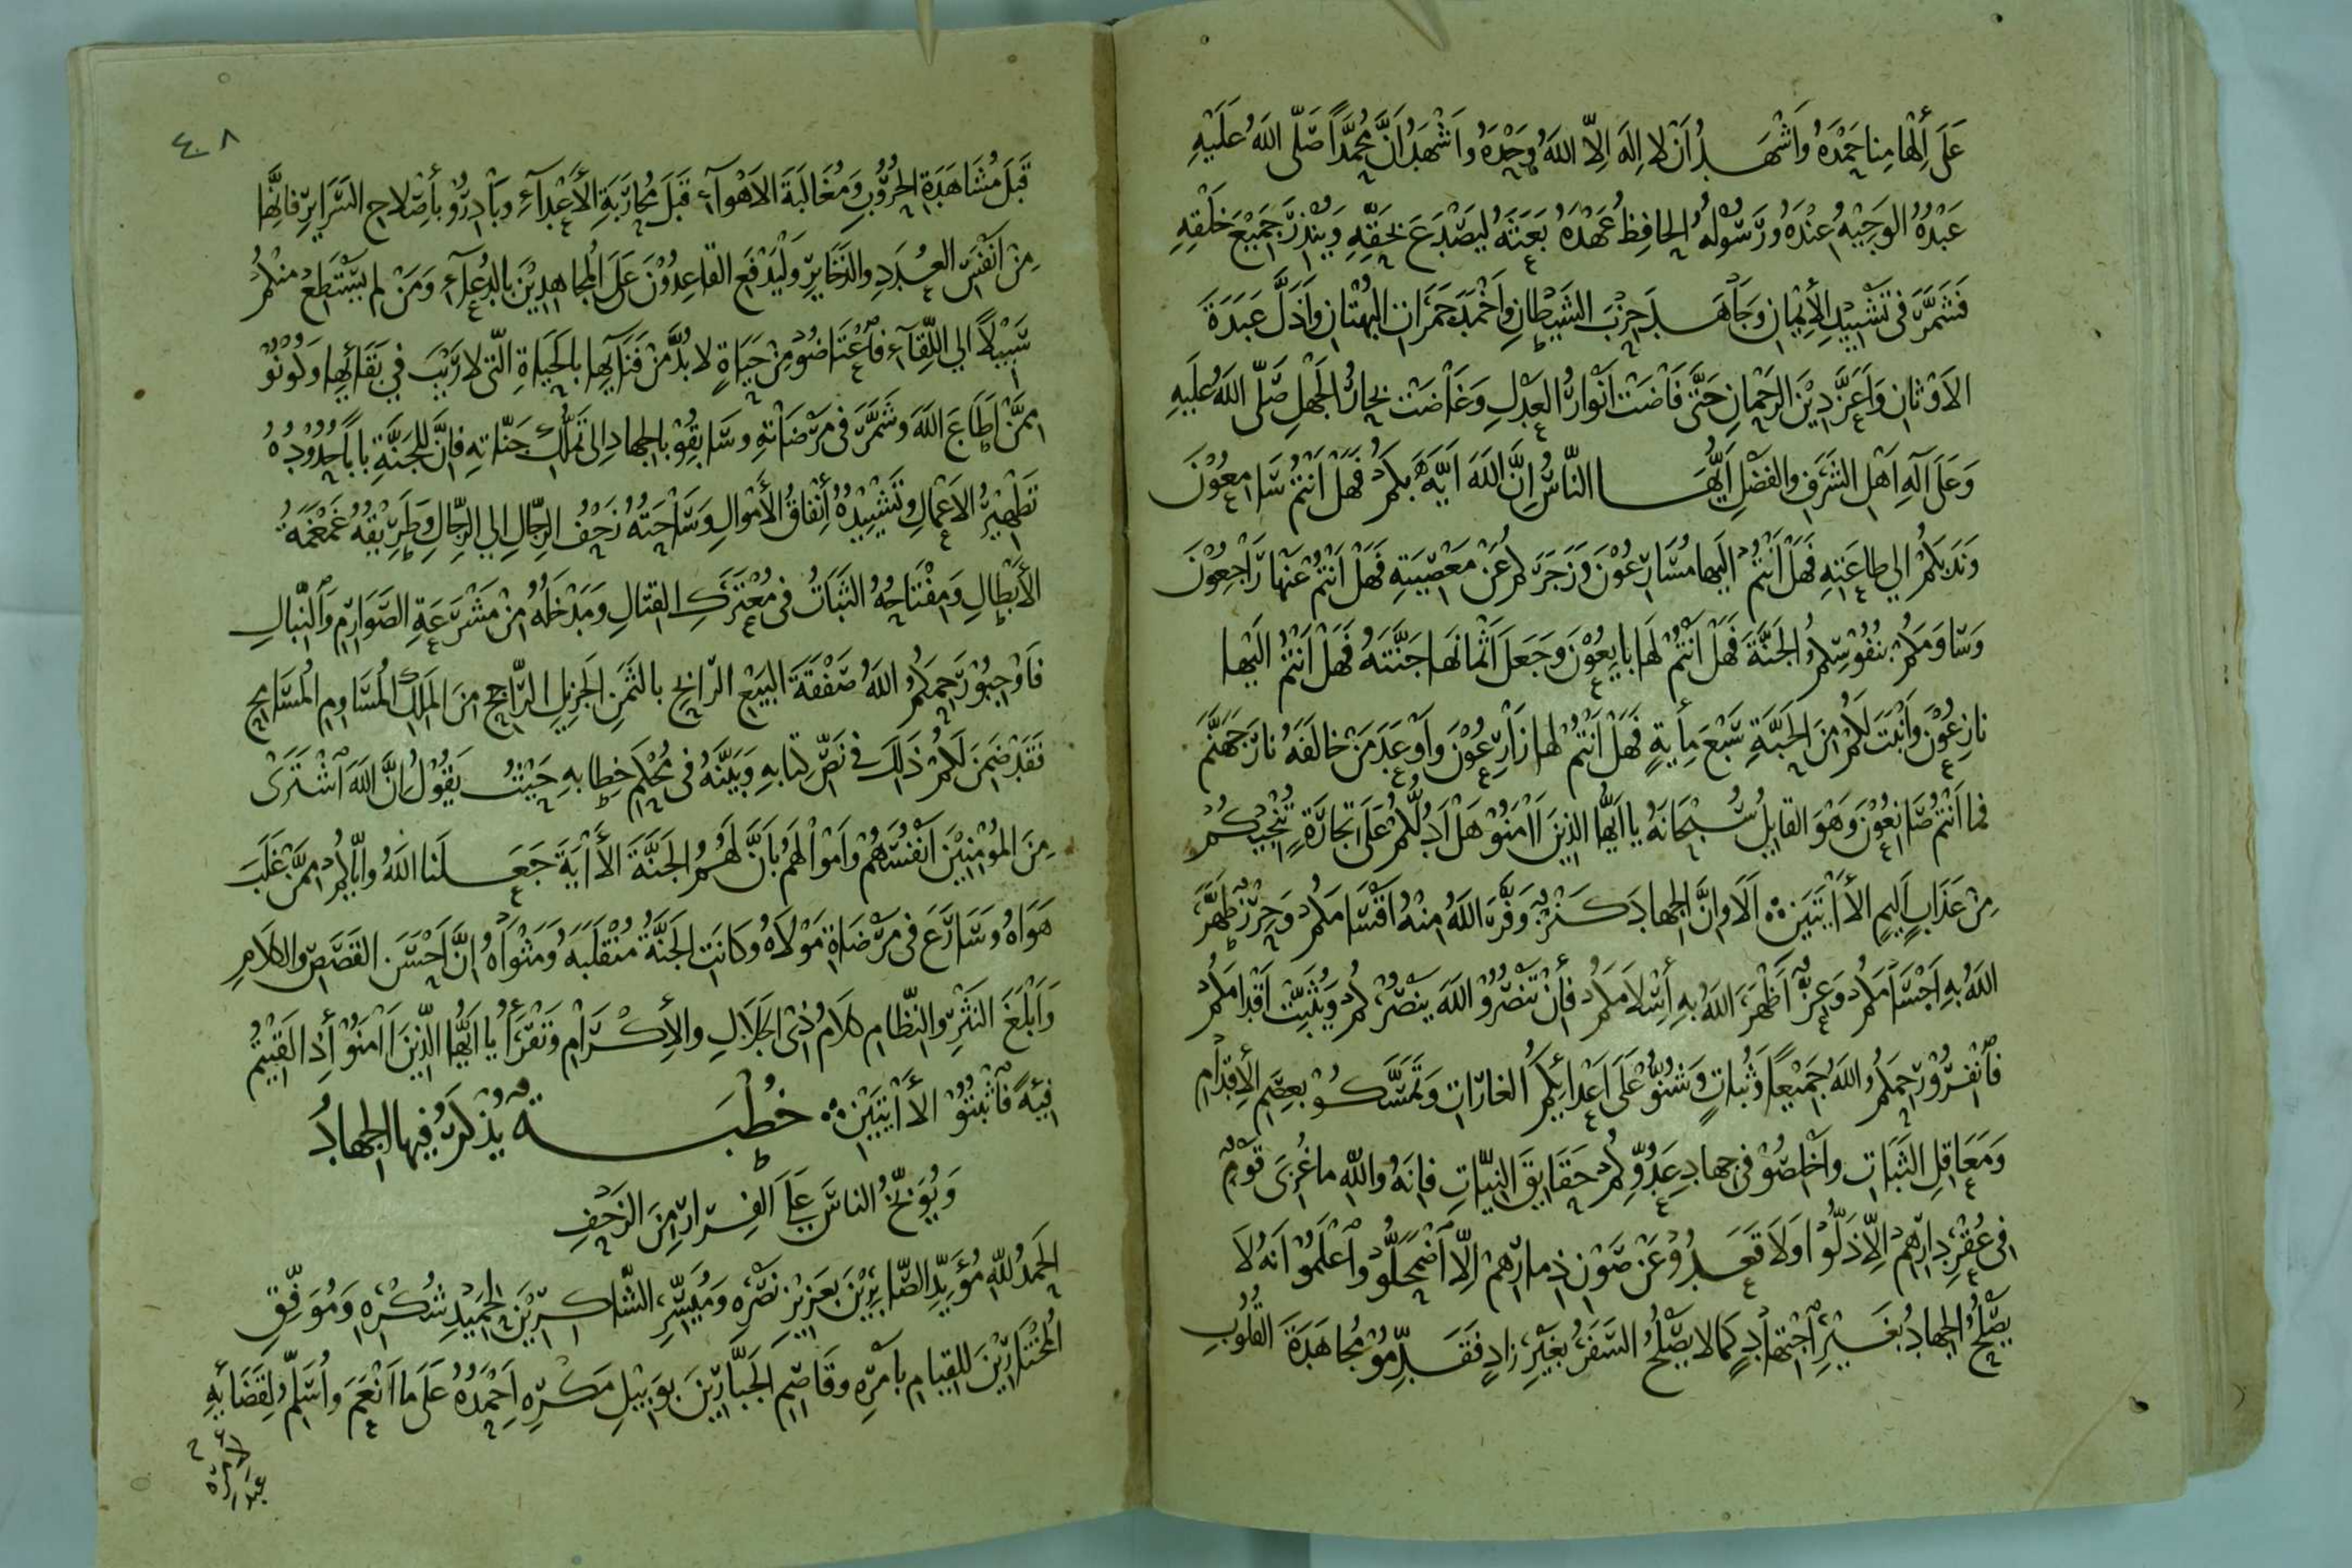 عَلَى إِلْهَامِنا حَمْدَهُ وَاَشْهَدُ اَنْ لا اِلهَ اِلّا اللّهُ وَحْدَهُ وَاَشْهَدُ اَنَّ مُحَمَّداً صَلّى اللهُ عَلَيْهِ
عَبْدُهُ الوَجِيْهُ عِنْدَهُ وَرَسُوْلُهُ الحَافِظُ عَهْدَهُ بَعَثَهُ لِيَصْدَعَ بِحَقِّهِ وَيُنْذِرَ جَمِيْعَ خَلْقِهِ
فَشَمَّرَ فى تَشْيِيْدِ الأِيْمَانِ وَجَاْهَدَ حِزْبَ الشَيْطَانِ وَاَخْمَدَ جَمَرَاتِ البُهْتَانِ وَاَذَلَّ عَبَدَةَ
الاَوْثانِ وَاَعَزَّ دِيْنَ الرَحْمانِ حَتَّى فَاضَتْ اَنْوَارُ العَدْلِ وَغَاضَتْ بِحَارُ الجَهْلِ صَلَّى اللّهُ عَلَيهِ
وَعَلَى آلِهِ اَهْلِ الشَرَفِ وَالفَضْلِ اَيُّهَا النّاسُ اِنَّ اللّهَ اَيَّهَ بِكُمْ فَهَلْ اَنْتُمْ سَامِعُوْنَ
وَنَدَبَكُمْ الي طاعَتِهِ فَهَلْ اَنْتُمْ اِلَيها مُسَارِعُوْنَ وَزَجَرَكُمْ عَنْ مَعْصِيَتِهِ فَهَلْ اَنْتُمْ عَنْها رَاْجِعُوْنَ
وَسَاوَمَكُمْ بنُفُوْسِكُمْ الجَنَّةَ فَهَلْ اَنْتُمْ لَها بايِعُوْنَ وَجَعَلَ اَثْمانَها جَنَّتَهُ فَهَلْ اَنْتُمْ اِلَيْها
نازِعُوْنَ وَاَنْبَتَ لَكُمْ مِنَ الحَبَّةِ سَبْعَ مِأيةٍ فَهَلْ اَنْتُمْ لها زَاْرِعُوْنَ وَاَوْعَدَ مَنْ خَالَفَهُ نارَ جَهَنَّمَ
فما اَنْتُمْ صَانِعُوْنَ وَهْوَ القَايِلُ سُبْحَانَهُ يا اَيُّها الذِينَ اٰمَنُوْ هَلْ اَدُلُّكُمْ عَلَى تِجَارَةٍ تُنْجِيْكُمْ
مِنْ عَذَابٍ اَلِيمٍ الأَاْيَتَيْنِ اَلَا وَاِنَّ الجِهادَ كَنْزٌ وَفَّرَ اللّهُ مِنْهُ اَقْسَامَكُمْ وَحِرْزٌ طَهَّرَ
اللّهُ بِهِ اَجْسَامَكُمْ وَعِزٌّ اَظْهَرَ اللّهُ بِهِ أسْلامَكُمْ فأنْ تَنْصُرُوْ اللّهَ يَنْصُرْكُمْ وَيُثَبِّتْ اَقْدَامَكُمْ
فَاْنْفِرُوْ رَحِمَكُمُ اللّهُ جَمِيْعاً وَثُبَاتٍ وَشُنُّوْ عَلَى اَعْدَايكُمُ الغارَاتِ وَتَمَسَّكُوْ بعِصَمِ الأِقْدَامِ
وَمَعَاقِلِ الثَبَاتِ وَاَخْلِصُوْ فى جهادِ عَدُوِّكُمْ حَقَايِقَ النِيّاتِ فانَهُ واللّهِ ما غُزِىَ قَوْمٌ
فى عُقْرِ دِارِهِمْ اِلّا ذَلُّوْا وَلَا قَعَدُوْ عَنْ صَوْنِ ذِمارِهِمْ اِلّا اْضْمَحَلُّوْ وَاْعْلَمُوْ اَنَهُ لَا
يَصْلُحُ الجِهادُ بغَيْرِ اْجْتِهاْدٍ كَمَا لا يَصْلُحُ السَفَرُ بغَيْرِ زادٍ فَقَدِّمُوْ مُجاهَدَةَ القُلُوْبِ
٤٠٨
قَبْلَ مُشَاهَدَةِ الحُرُوْبِ وَمُغَالَبَةَ الاَهْوآءِ قَبْلَ مُحارَبَةِ الأَعْدآءِ وَبَاْدِرُوْ بأصْلاحِ السَرَايرِ فَانَّها
مِنْ اَنْفَسِ العُدَدِ وَالذَخَايرِ وَلْيَدْفَعِ القاعِدُوْنَ عَلَى المُجاهِدِيْنَ بالدُعآءِ وَمَنْ لم يَسْتَطِعْ مِنْكُمْ
سَبِيْلاً الي اللِّقآءِ فَاْعْتَاضُوْ مِنْ حَيَاةٍ لا بُدَّ مِنْ فَنَايِهَا بالحَيَاةِ الّتى لا رَيْبَ في بَقَائِهَا وَكُوْنُوْ
مِمَّنْ اَطَاعَ اللّهَ وَشَمَّرَ فى مَرْضَاتِهِ وَسَابِقُوْ بالجِهادِ اِلى تَمَلُّكِ جَنّاتِهِ فاِنَّ للجَنَّةِ باباً حُدُوْدُهُ
تَطْهِيْرُ الاَعْمَالِ وَتَشْيِيْدُهُ أِنْفَاقُ الأَمْوالِ وَسَاْحَتُهُ زَحْفُ الرِجَالِ اِلي الرِجَالِ وَطَرِيْقُهُ غَمْغَمَةُ
الأَبْطالِ وَمِفْتَاحُهُ الثَبَاتُ فى مُعْتَرَكِ القِتالِ وَمَدْخَلُهُ مِنْ مَشْرَعَةِ الصَوَارِمِ وَالنِّبَالِ
فَاَوْجِبُوْ رَحِمَكُمُ اللّهُ صَفْقَةَ البَيْعِ الرّابحِ بالثَمَنِ الجَزِيلِ الرّاجحِ مِنَ المَلِكِ المُسَاوِمِ المُسَامِحِ
فَقَدْ ضَمِنَ لَكُمْ ذَلِكَ في نَصِّ كِتَابِهِ وَبَيَّنَهُ فى مُحْكَمِ خِطابِهِ حَيْثُ يَقُوْلُ اِنَّ اللّهَ اْشْتَرَىْ
مِنَ المُؤْمِنِيْنَ اَنْفُسَهُمْ وَاَمْوالَهُمْ بأنَّ لَهُمُ الجَنَّةَ الأَاْيَةَ جَعَلَنا اللّهُ وايّاكُمْ مِمَّنْ غَلَبَ
هَوَاهُ وَسَارَعَ فى مَرْضَاةِ مَوْلَاهُ وَكانَتِ الجَنَّةُ مُنْقَلَبَهُ وَمَثْوَاْهُ اِنَّ اَحْسَنَ القَصَصِ والكَلَامِ
وَاَبْلَغَ النَثْرِ والنِظَامِ كَلَامُ ذِىْ الجَلَالِ والأِكْرَاْمِ وَتَقْرَأُ يا اَيُّها الّذِيْنَ اٰمَنُوْ أِذَا لَقِيْتُمْ
فِيَةً فَاْثْبُتُوْ الأَاْيَتَيْنِ خُطْبَةٌ يُذْكَرُ فِيها الجِهَادُ
وَيُوَبِّخُ الناسَ عَلَى الفِرَارِ مِنَ الزَحْفِ
الحَمدُ للّهِ مُؤَيِّدِ الصَّابِرِيْنَ بعَزِيْزِ نَصْرِهِ وَمُيَسِّرِ الشّاكِرِيْنَ لحَمِيْدِ شُكْرِهِ وَمُوَفِّقِ
المُخْتَارِيْنَ للقِيَامِ بأمْرِهِ وَقَاصِمِ الجَبَّارِيْنَ بوَبِيْلِ مَكْرِهِ اَحْمَدُهُ عَلَى ما اَنْعَمَ وَاُسَلِّمُ لِقَضَائِهِ